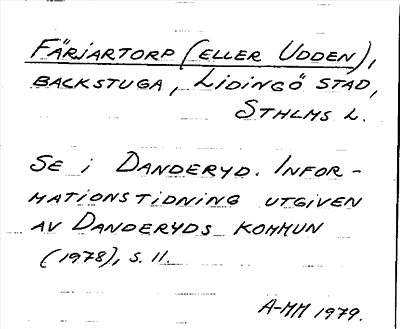 FÄRJARTORP (ELLER UDDEN),
BACKSTUGA, LIDINGÖ STAD,
STHLMS L.
SE I DANDERYD. INFOR-
MATIONSTIDNING UTGIVEN
AV DANDERYDS KOMMUN
(1978), S. 11.
A-MM 1979.